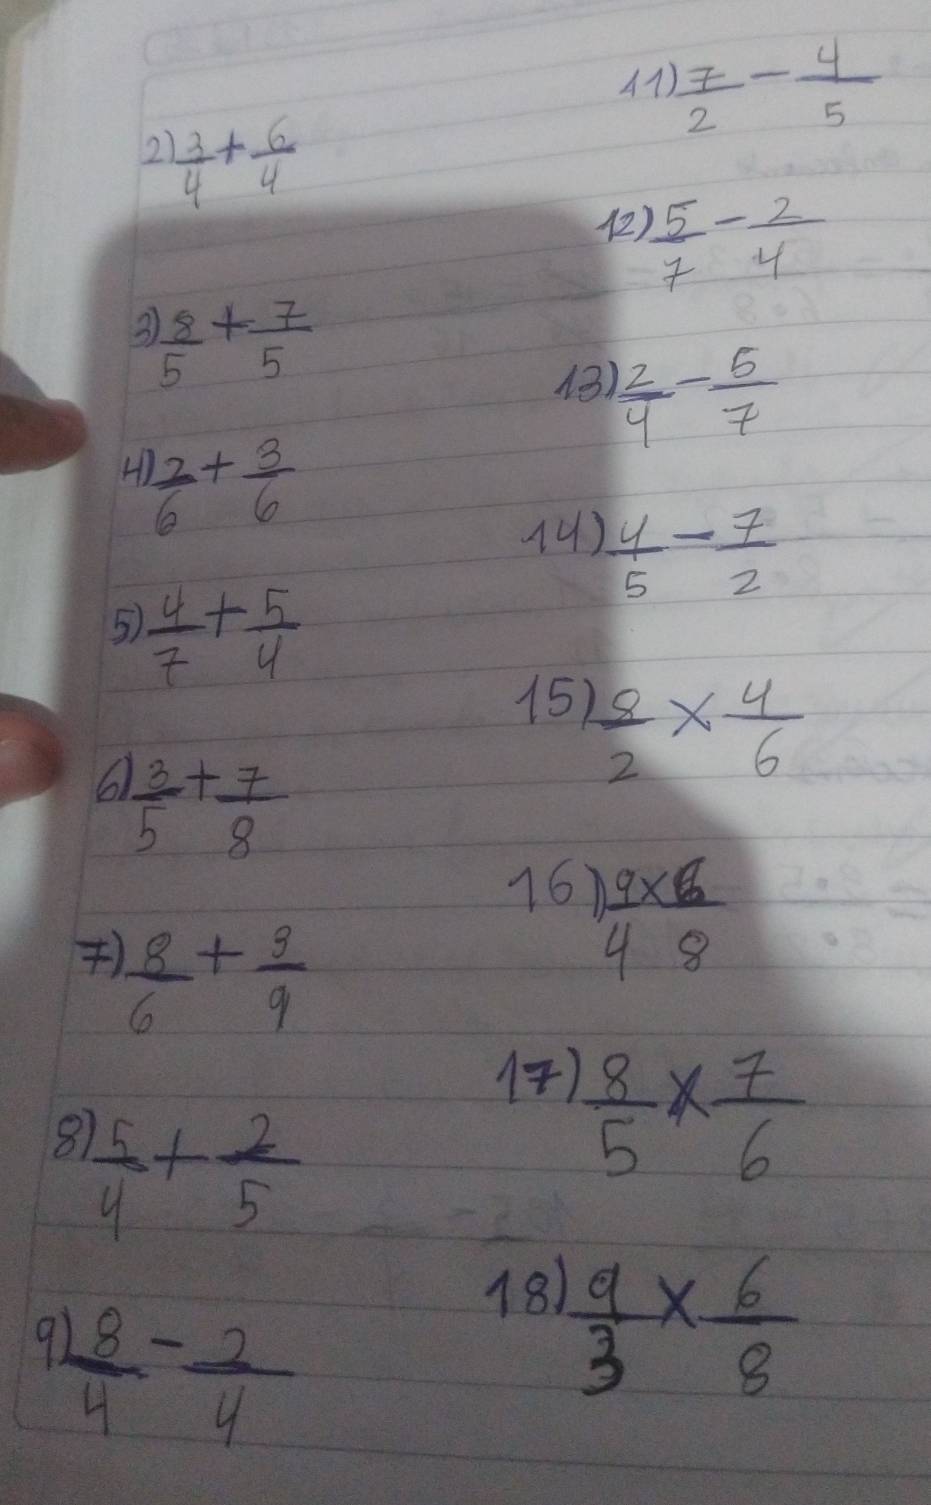 2) 3/4 + 6/4
3) 8/5 + 7/5
4) 2/6 + 3/6
5) 4/7 + 5/4
6) 3/5 + 7/8
7) 8/6 + 3/9
8) 5/4 + 2/5
9) 8/4 - 2/4
11) 7/2 - 4/5
12) 5/7 - 2/4
13) 2/4 - 5/7
14) 4/5 - 7/2
15) 8/2 × 4/6
16) 9/4 × 6/8
17) 8/5 × 7/6
18) 9/3 × 6/8